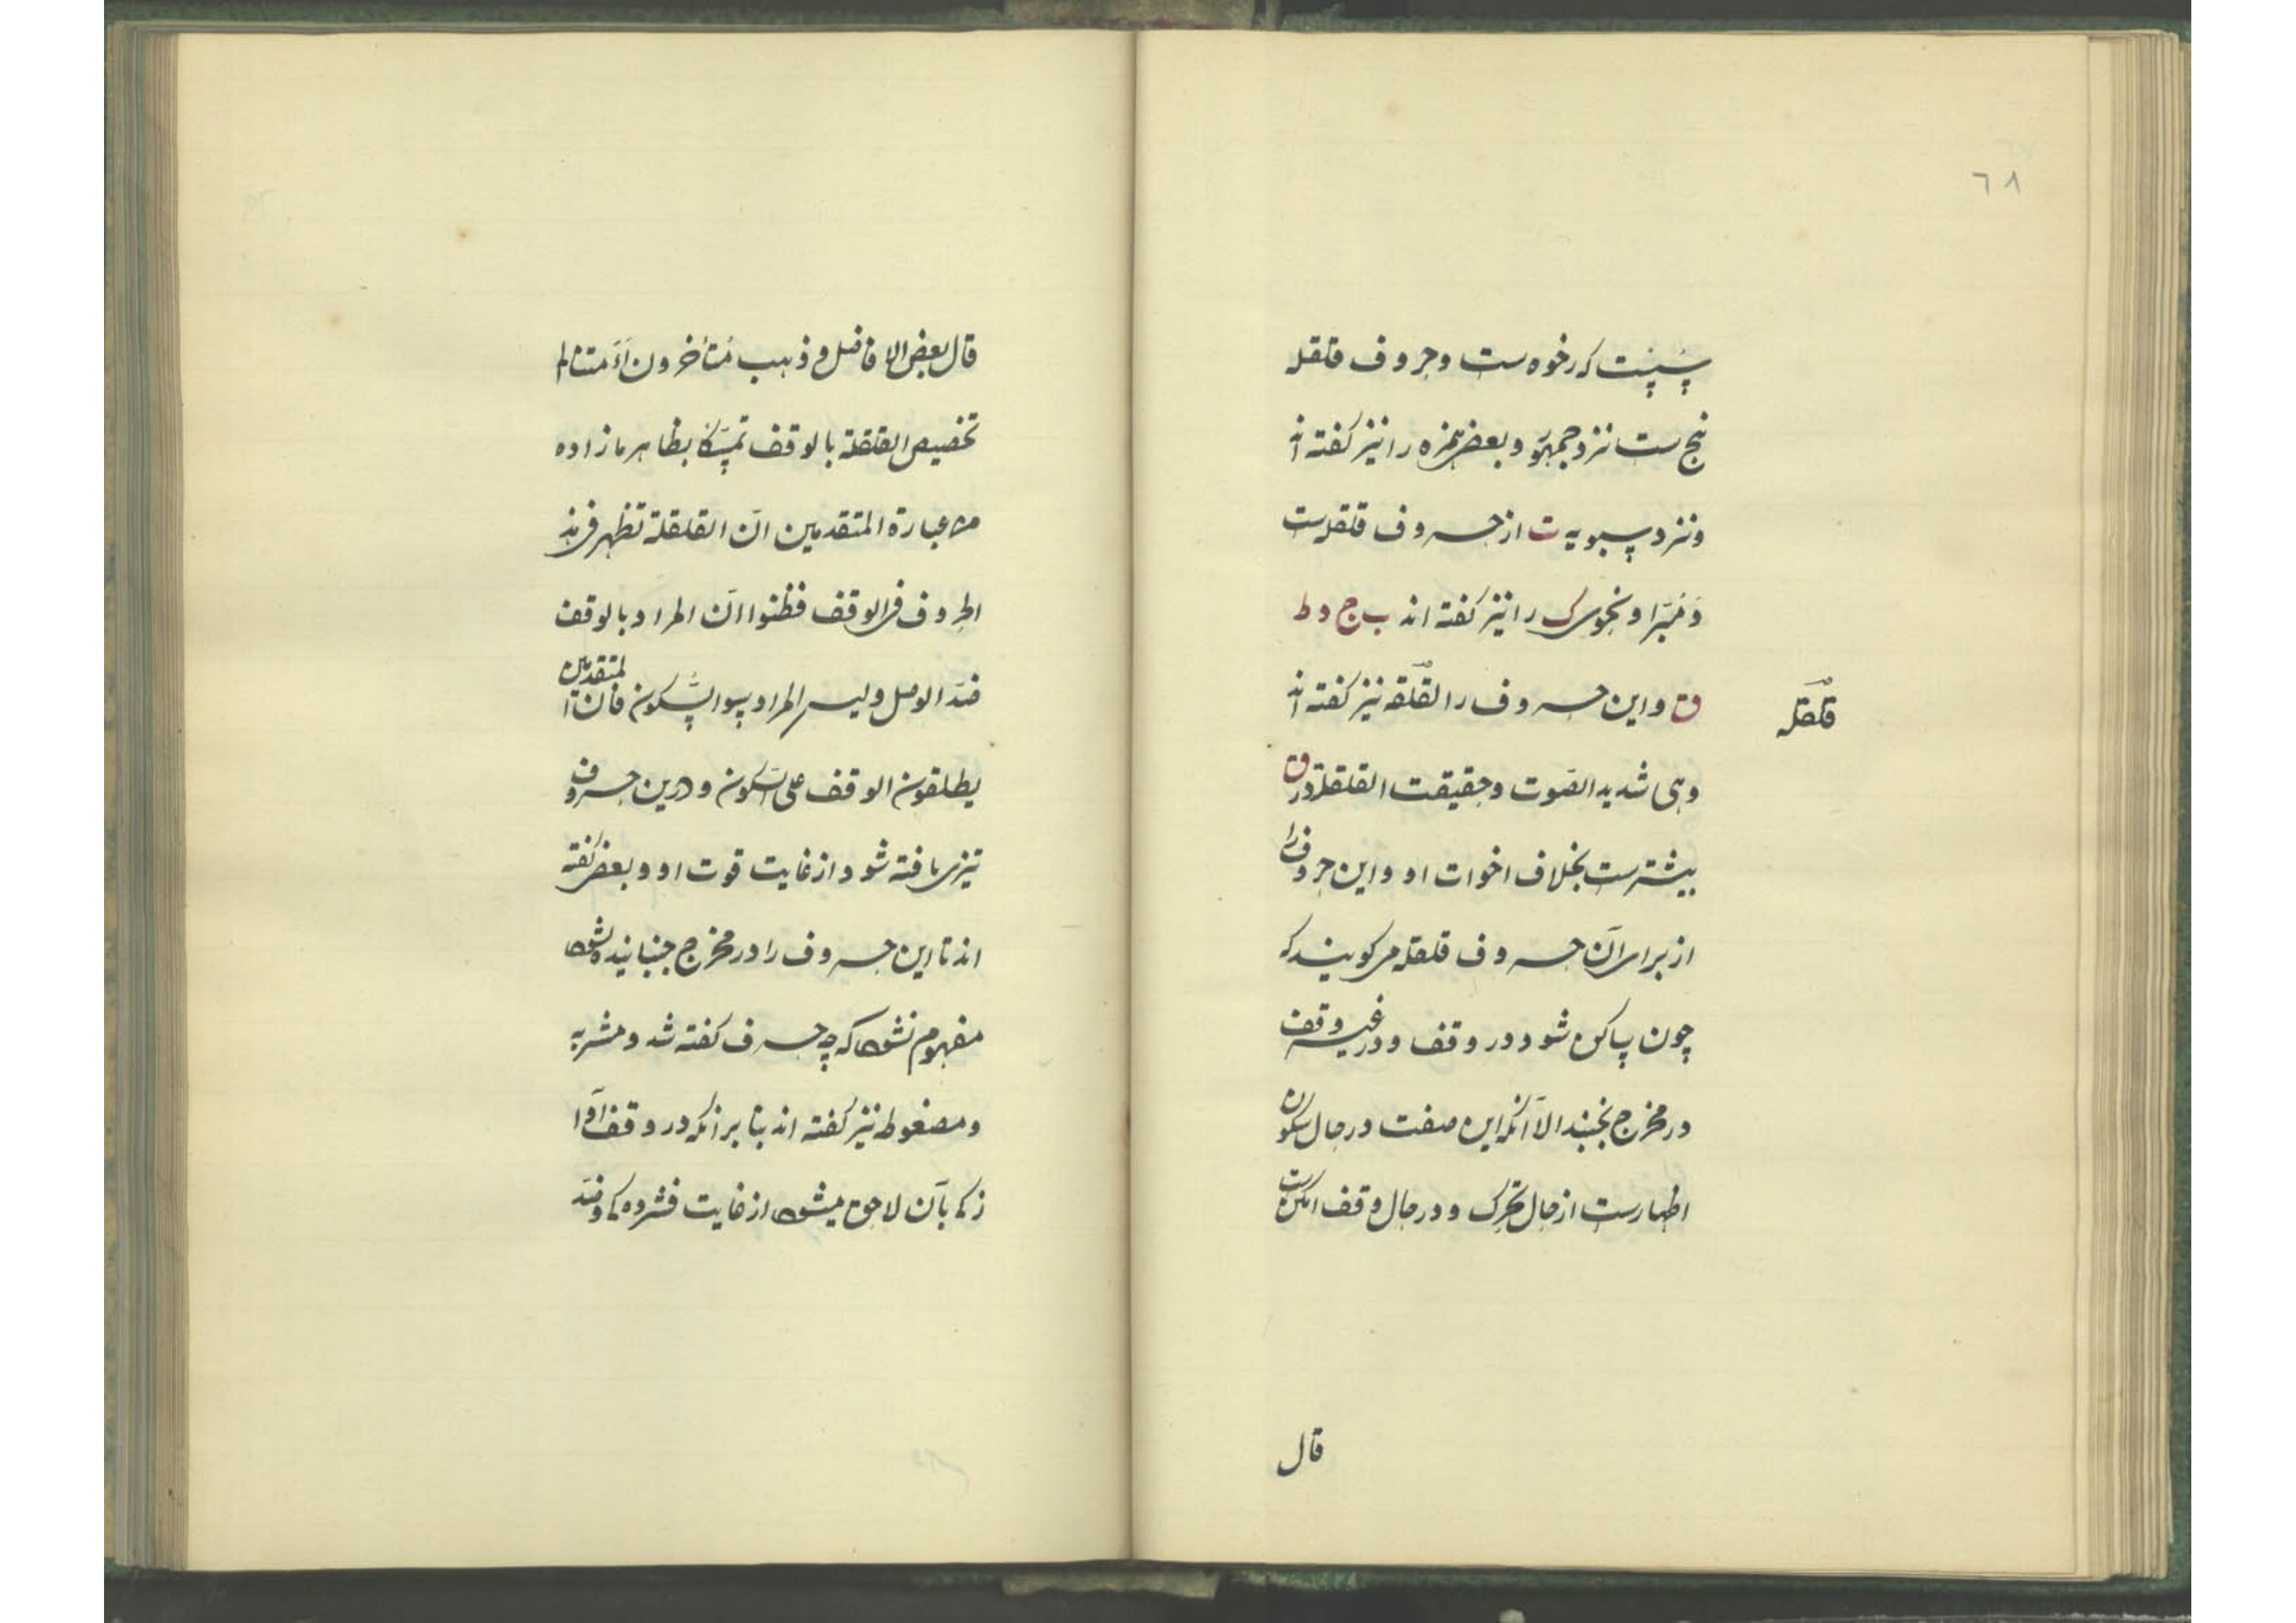 ٦٨
سُسْت که رخوه ست و حروف قلقله
پنج ست نزد جمهور و بعضی همزه را نیز گفته اند
و نزد سیبویه ت از حروف قلقله ست
و مُبَرّد نحوی ک را نیز گفته اند ب ج د ط
ق و این حروف را لقلقه نیز گفته اند
قلقله
وهی شدید الصّوت و حقیقت القلقلة در ق
بیشترست بخلاف اخوات او و این حروف را
از برای آن حروف قلقله می کویند که
چون ساکن شود در وقف و در غیر وقف
در مخرج بجنبد الّا آنکه این صفت در حال سکون
اظهارست از حال تحرک و در حال وقف امکن ست
قال
قال بعض الافاضل و ذهب متأخرون ائمتنا الی
تخصیص القلقلة بالوقف تمسّکا بظاهر ما زاده
من عبارة المتقدمین انّ القلقلة تظهر فی هذه
الحروف فی الوقف فظنوا انّ المراد بالوقف
ضدّ الوصل ولیس المراد سوا السّکون فان المتقدمین
یطلقون الوقف علی السّکون و درین حروف
تیزی یافته شود از غایت قوت او و بعضی گفته
اند تا این حروف را در مخرج جنبانیده نشود
مفهوم نشود که چه حرف گفته شد و مشربه
و مضغوطه نیز گفته اند بنا برانکه در وقف آوا
زکی بآن لاحق میشود از غایت فشردگی و ضدّ